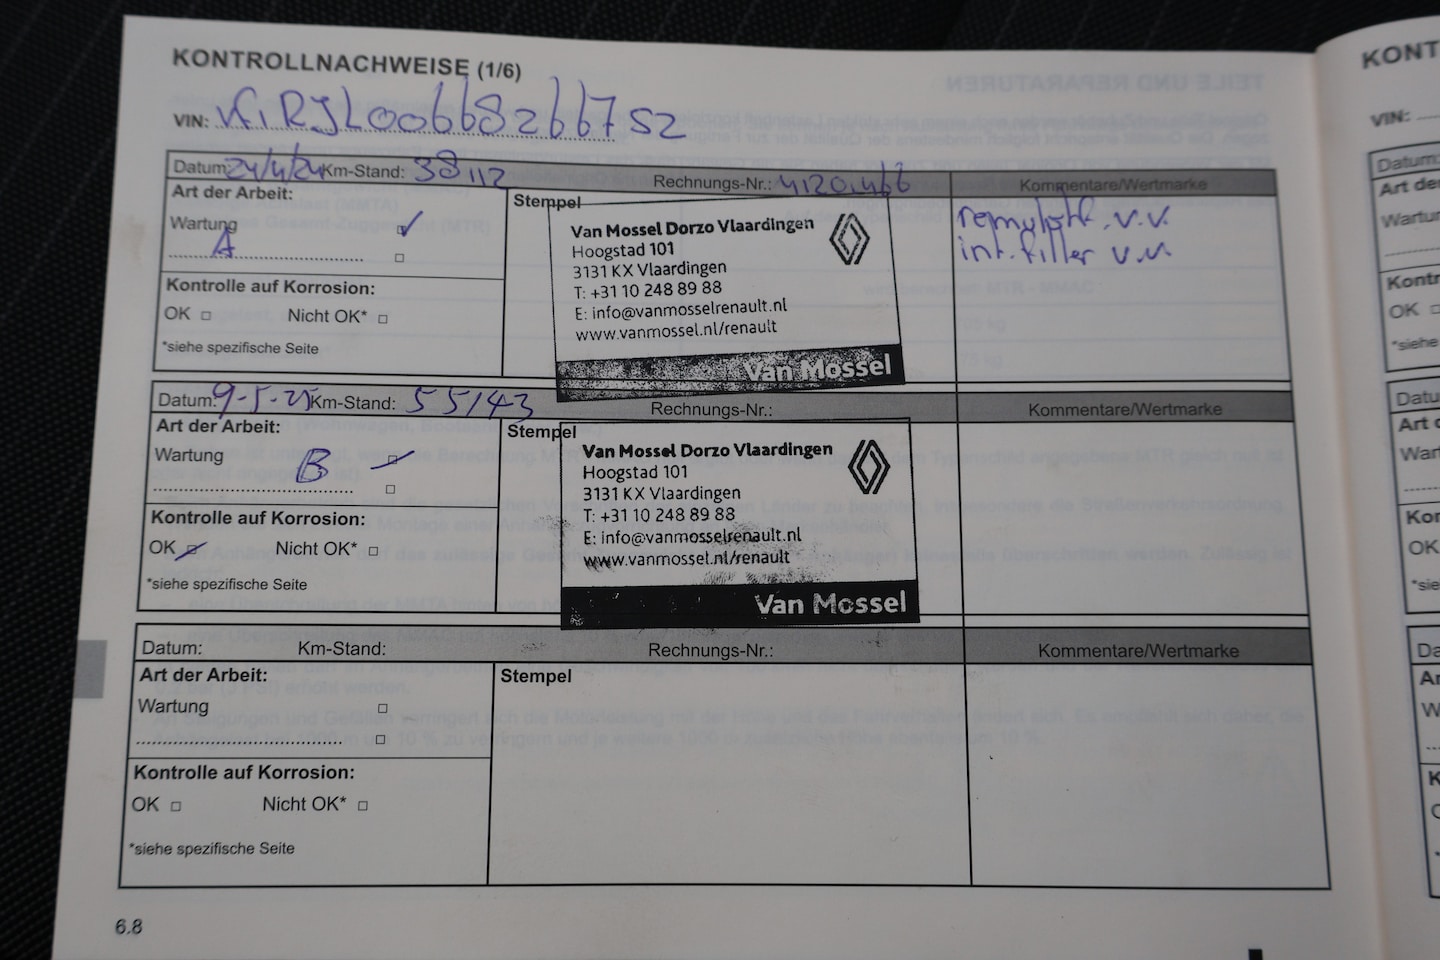 KONTROLLNACHWEISE (1/6)
VIN: VF1RJL00668266752
Datum: 24/4/24 Km-Stand: 38112 Rechnungs-Nr.: 4120466 Kommentare/Wertmarke
Art der Arbeit:
Wartung
A
Kontrolle auf Korrosion:
OK Nicht OK*
*siehe spezifische Seite
Stempel
Van Mossel Dorzo Vlaardingen
Hoogstad 101
3131 KX Vlaardingen
T: +31 10 248 89 88
E: info@vanmosselrenault.nl
www.vanmossel.nl/renault
Van Mossel
v.v.
int. filter v.v.
Datum: 9-5-25 Km-Stand: 55143 Rechnungs-Nr.: Kommentare/Wertmarke
Art der Arbeit:
Wartung B
Kontrolle auf Korrosion:
OK Nicht OK*
*siehe spezifische Seite
Stempel
Van Mossel Dorzo Vlaardingen
Hoogstad 101
3131 KX Vlaardingen
T: +31 10 248 89 88
E: info@vanmosselrenault.nl
www.vanmossel.nl/renault
Van Mossel
Datum: Km-Stand: Rechnungs-Nr.: Kommentare/Wertmarke
Art der Arbeit:
Wartung
Kontrolle auf Korrosion:
OK Nicht OK*
*siehe spezifische Seite
Stempel
6.8
VIN:
Datum:
OK
*siehe
OK